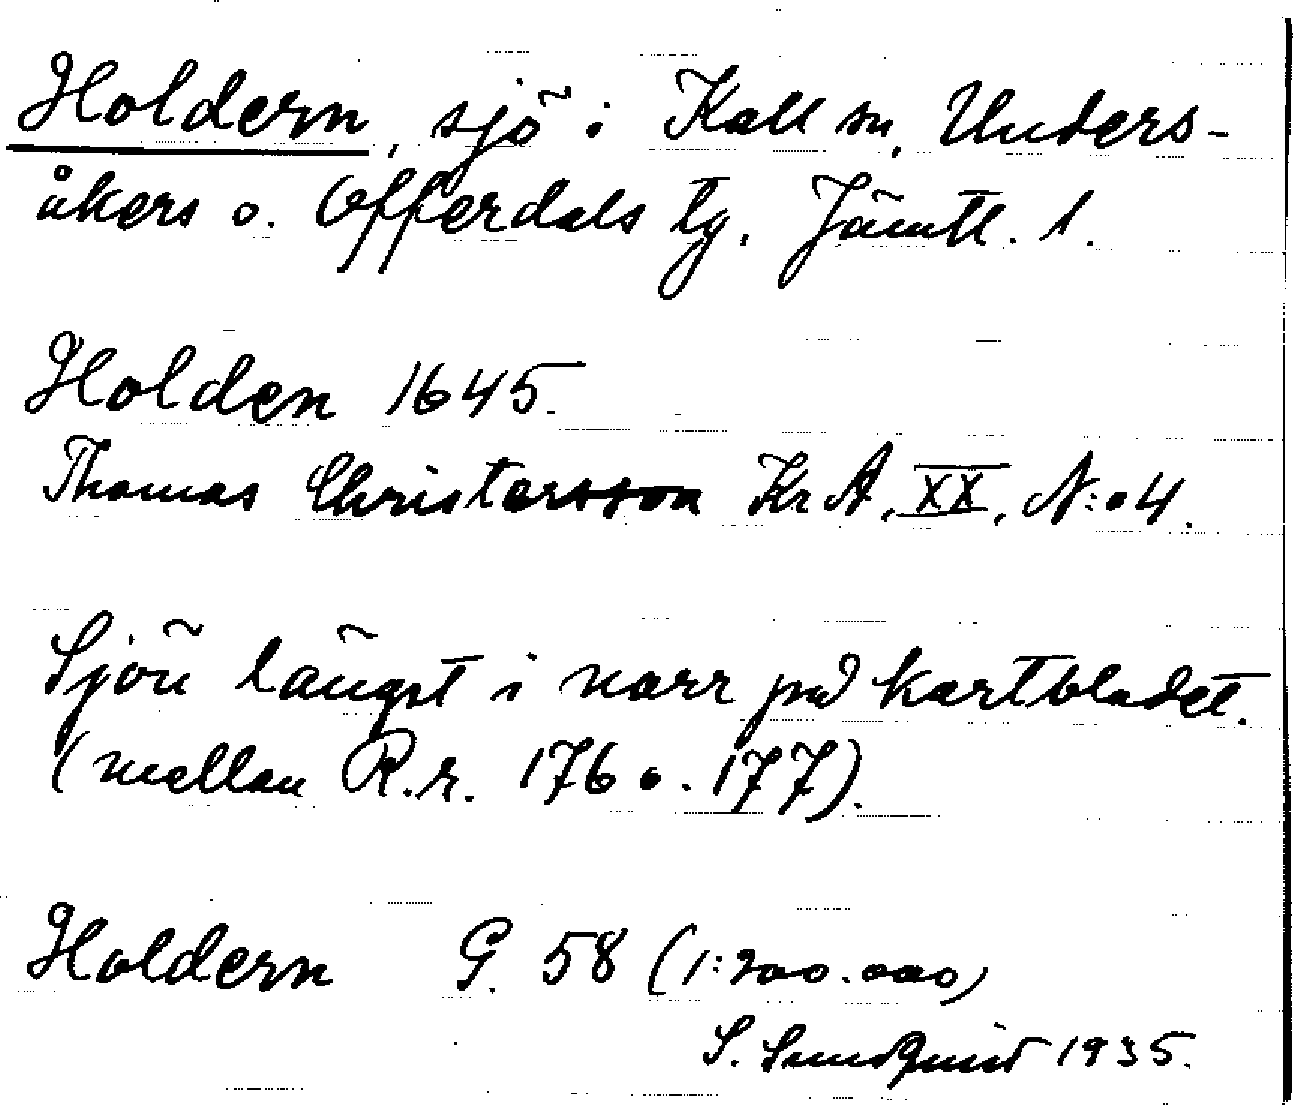 Holdern, sjö i Kall sn, Unders-
åkers o. Offerdals tg. Jämtl. l.
Holden 1645.
Thomas Christersson Kr A, XX, N:o 4.
Sjön längst i norr på kartbladet.
(mellan R.r. 176 o. 177).
Holdern G. 58 (1:200.000)
S. Sundquist 1935.